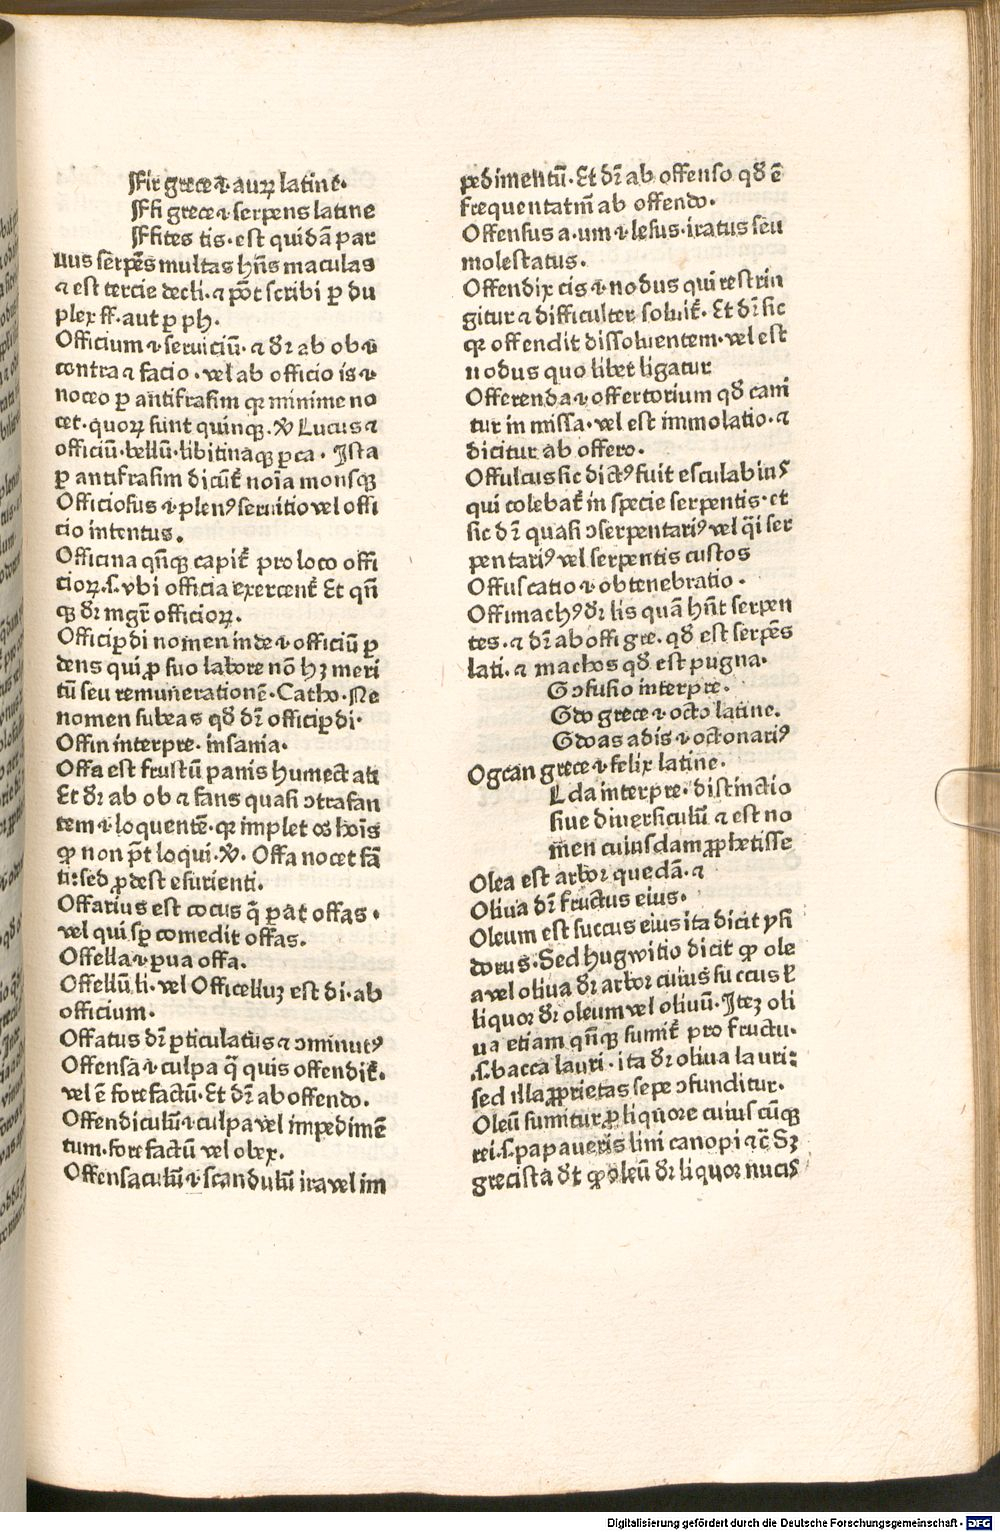 Ffir grece .i. auꝝ latine.
Ffi grece .i. serpens latine
Ffites tis. est quidā par
uus serpēs multas hñs maculas
⁊ est tercie decli. ⁊ põt scribi ꝑ du
plex ff. aut ꝑ ph.
Officium .i. seruiciū. ⁊ dr̄ ab ob .i.
contra ⁊ facio. vel ab officio is .i.
noceo ꝑ antifrasim qr minime no
cet. quoꝝ sunt quinqꝫ. Vꝰ Lucus ⁊
officiū. bellū. libitinaqꝫ ꝑca. Ista
ꝑ antifrasim dicūt̄ noīa monsqꝫ
Officiosus .i. plenꝰ seruitio vel offi
cio intentus.
Officina qñqꝫ capit̄ pro loco offi
cioꝝ. s. vbi officia exercent̄ Et qñ
qꝫ dr̄ mgr̄ officioꝝ.
Officiꝑdi nomen inde .i. officiū ꝑ
dens qui ꝓ suo labore nō hꝫ meri
tū seu remunerationē. Catho. Ne
nomen subeas qd̄ dr̄ officiꝑdi.
Offin interpre. insania.
Offa est frustū panis humectati
Et dr̄ ab ob ⁊ fans quasi ↄtra fan
tem .i. loquentē. qr implet os hoīs
ꝙ non pt̄ loqui. Vꝰ. Offa nocet fā
ti: sed ꝓdest esurienti.
Offarius est cocus q̄ ꝑat offas.
vel qui sꝑ comedit offas.
Offella .i. ꝑua offa.
Offellū. li. vel Officelluꝫ est di. ab
officium.
Offatus dr̄ ꝑticulatus ⁊ ↄminutꝰ
Offensa .i. culpa q̄ quis offendit̄.
vel ē forefactū. Et dr̄ ab offendo.
Offendiculū .i. culpa vel impedimē
tum. forefactū vel obex.
Offensaculū .i. scandulū ira vel im
pedimentū. Et dr̄ ab offenso qd̄ ē
frequentatiuū ab offendo.
Offensus a. um .i. lesus. iratus seu
molestatus.
Offendix cis .i. nodus qui restrin
gitur ⁊ difficulter soluit̄. Et dr̄ sic
qr offendit dissoluentem. vel est
nodus quo libet ligatur
Offerenda .i. offertorium qd̄ cani
tur in missa. vel est immolatio. ⁊
dicitur ab offero.
Offulcus sic dictꝰ fuit esculabinꝰ
qui colebat̄ in specie serpentis. et
sic dr̄ quasi ↄserpentariꝰ vel q̄i ser
pentariꝰ vel serpentis custos
Offuscatio .i. obtenebratio.
Offimachꝰ dr̄ lis quā hñt serpen
tes. ⁊ dr̄ ab offi gre. qd̄ est serpēs
lati. ⁊ machos qd̄ est pugna.
Gↄfusio interpre.
Gdo grece .i. octo latine.
Gdoas adis .i. octonariꝰ
Ogean grece .i. felix latine.
Lda interpre. distinctio
siue diuersiculū ⁊ est no
men cuiusdam ꝓphetisse
Olea est arbor quedā. ⁊
Oliua dr̄ fructus eius.
Oleum est succus eius ita dicit ysi
dorus. Sed hugwitio dicit ꝙ ole
a vel oliua dr̄ arbor cuius succus vl̄
liquor dr̄ oleum vel oliuū. Iteꝫ oli
ua etiam qñqꝫ sumit̄ pro fructu.
.s. bacca lauri. ita dr̄ oliua lauri:
sed illa ꝓprietas sepe ↄfunditur.
Oleū sumitur ꝓ liquore cuiuscūqꝫ
rei. s. papaueris lini canopi ⁊ c̄ Sꝫ
grecista dt̄ ꝙ oleū dr̄ liquor nucis
Digitalisierung gefördert durch die Deutsche Forschungsgemeinschaft - DFG